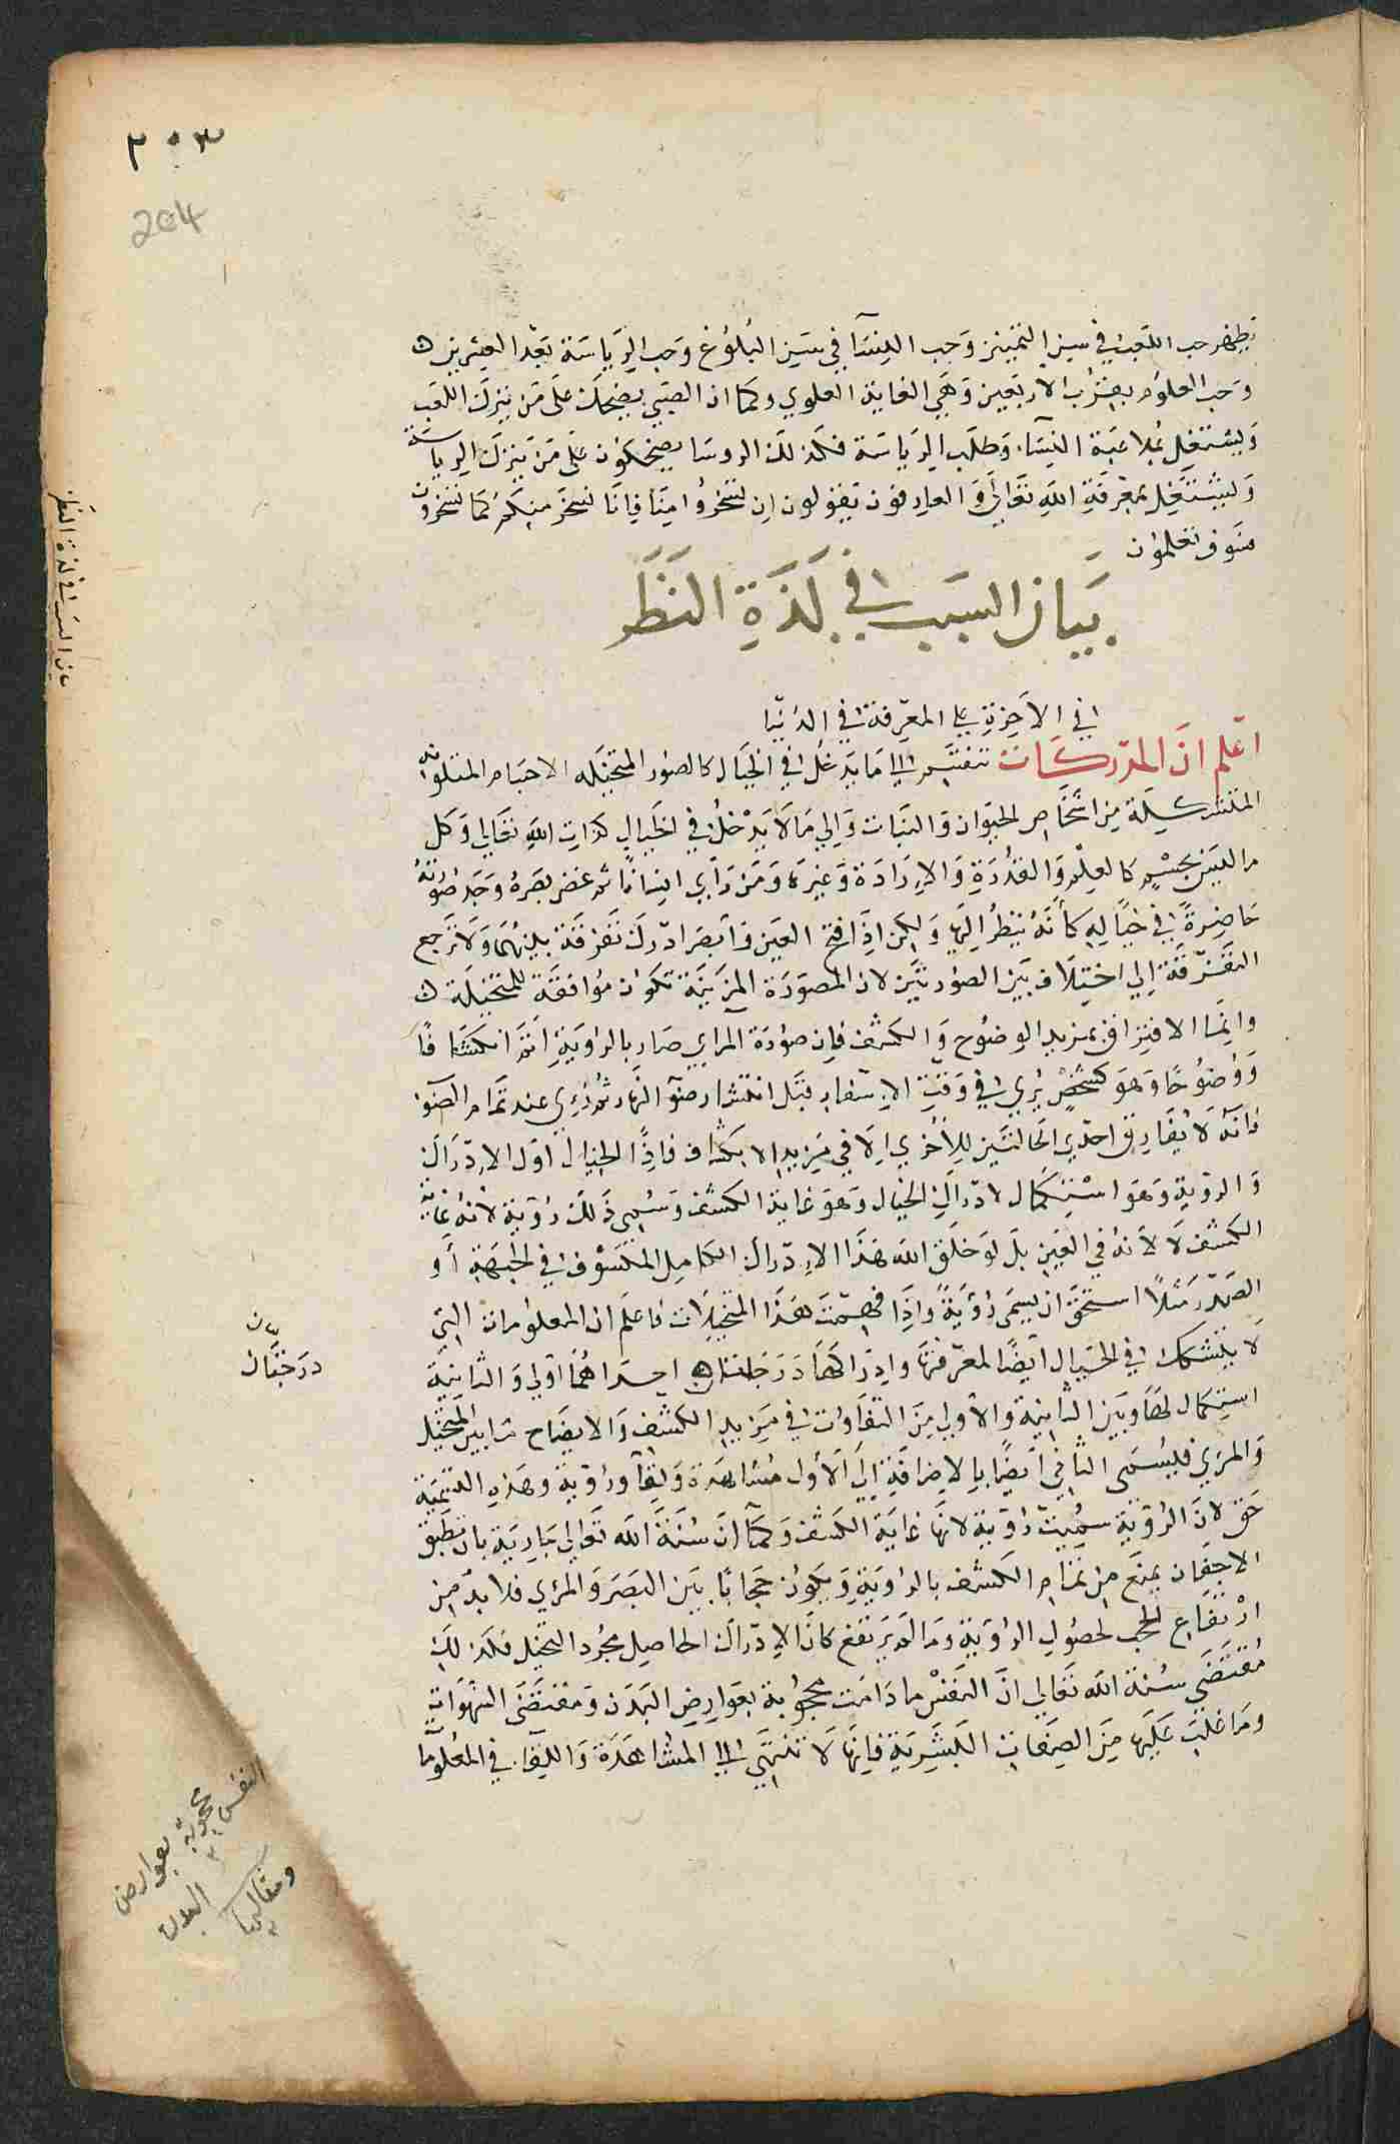 ٢٠٣
204
يظهر حب اللعب في سن التمييز وحب النسآ في سن البلوغ وحب الرياسة بعد العشرين
وحب العلوم بقرب الاربعين وهي الغاية العلوي وكما ان الصبي يضحك على من يترك اللعب
ويشتغل بملاعبة النسآ وطلب الرياسة فكذلك الروسا يضحكون على من يترك الرياسة
ويشتغل بمعرفة الله تعالى والعارفون يقولون ان تسخروا منا فانا نسخر منكم كما تسخرون
فسوف تعلمون
بيان السبب في لذة النظر
في الآخرة على المعرفة في الدنيا
اعلم ان المدركات تنقسم الى ما يدخل في الخيال كالصور المتخيله الاجسام المتلونه
المتشكلة من اشخاص الحيوان والنبات والي ما لا يدخل في الخيال كذات الله تعالي وكل
ما ليس بجسم كالعلم والقدرة والارادة وغيره ومن رأي انسانا ثم غض بصره وجد صورته
حاضرة في خياله كأنه ينظر اليها ولكن اذا فتح العين وابصر ادرك تفرقة بينهما ولا ترجع
التفرقة الي اختلاف بين الصورتين لان الصورة المرئية تكون موافقة للمتخيلة
وانما الافتراق بمزيد الوضوح والكشف فان صورة المراي صار بالرؤية اتم انكشافا
ووضوحا وهو كشخص يري في وقت الاسفار قبل انتشار ضوآ النهار ثم رؤي عند تمام الضوء
فانه لا يفارق احدي الحالتين للأخري الا في مزيد الانكشاف فاذا الخيال اول الادراك
والرؤية وهو استكمال لادراك الخيال وهو غاية الكشف وسمي ذلك رؤية لانه غاية
الكشف لا لأنه في العين بل لو خلق الله هذا الادراك الكامل المكشوف في الجبهة أو
الصدر مثلا استحق ان يسمى رؤية واذا فهمت هذا المتخيلات فاعلم ان المعلومات التي
لا يتشكل في الخيال ايضا لمعرفتها وادراكها درجتان احداهما اولي والثانية
استكمال لها وبين الثانية والأولي من التفاوت في مزيد الكشف والايضاح ما بين المتخيل
والمري فليسمى الثاني ايضا بالاضافة الى الأول مشاهدة ولقآ ورؤية وهذه التسمية
حق لان الرؤية سميت رؤية لانها غاية الكشف وكما ان سنة الله تعالي جارية بان تطبق
الاجفان يمنع من تمام الكشف بالرؤية ويكون حجابا بين البصر والمرئي فلا بد من
ارتفاع الحجب لحصول الرؤية وما لم يرتفع كان الادراك الحاصل مجرد التخيل فكذلك
مقتضي سنة الله تعالي ان النفس ما دامت محجوبة بعوارض البدن ومقتضى الشهوات
وما غلب عليها من الصفات البشرية فانها لا تنتهي الى المشاهدة واللقآ في المعلوما
بيان السبب في لذة النظر
درجتان
النفس محجوبة بعوارض
البدن